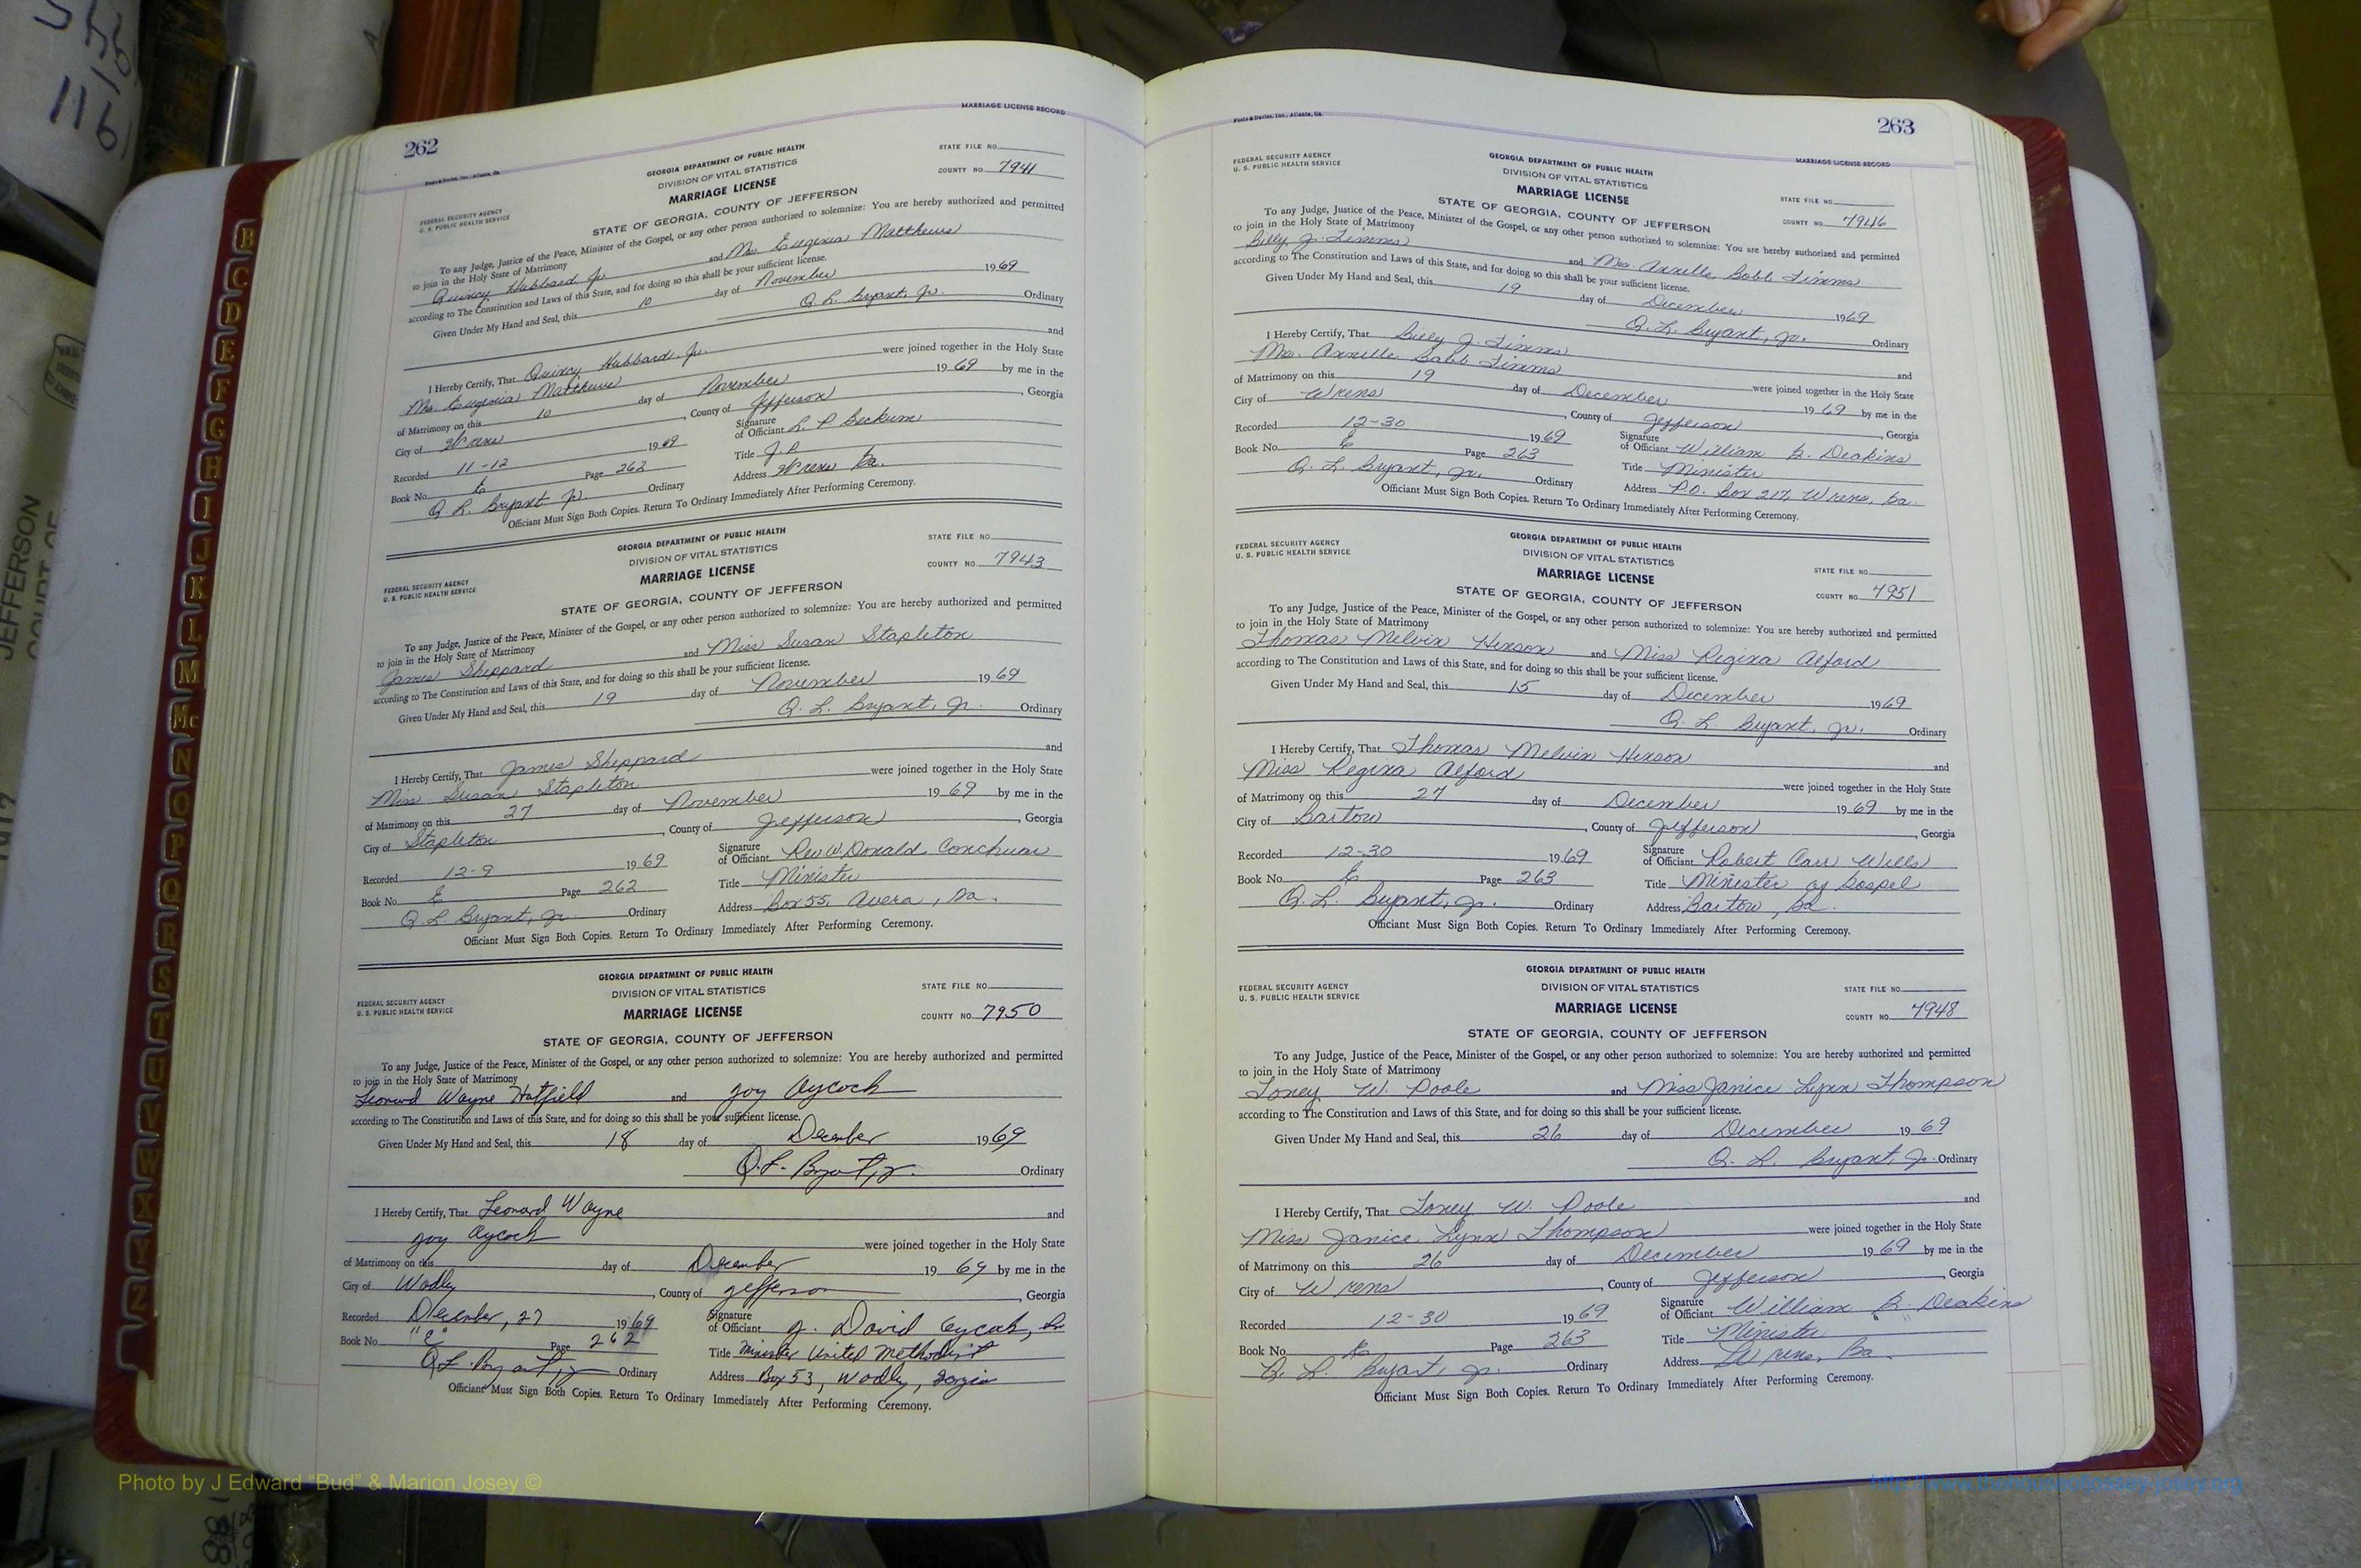 262
MARRIAGE LICENSE RECORD
Foote & Davies, Inc., Atlanta, Ga.
GEORGIA DEPARTMENT OF PUBLIC HEALTH
DIVISION OF VITAL STATISTICS
MARRIAGE LICENSE
STATE OF GEORGIA, COUNTY OF JEFFERSON
FEDERAL SECURITY AGENCY
U. S. PUBLIC HEALTH SERVICE
STATE FILE NO.
COUNTY NO. 7941
To any Judge, Justice of the Peace, Minister of the Gospel, or any other person authorized to solemnize: You are hereby authorized and permitted
to join in the Holy State of Matrimony
Quincy Hubbard, Jr. and Ms. Eugenia Matthews
according to The Constitution and Laws of this State, and for doing so this shall be your sufficient license.
Given Under My Hand and Seal, this 10 day of November 1969
Q. L. Bryant, Jr. Ordinary
I Hereby Certify, That Quincy Hubbard, Jr. and
Ms. Eugenia Matthews were joined together in the Holy State
of Matrimony on this 10 day of November 1969 by me in the
City of Wrens, County of Jefferson, Georgia
Recorded 11-12 1969 Signature of Officiant L. P. Beckum
Book No. E Page 262 Title J. P.
Q. L. Bryant Jr. Ordinary Address Wrens Ga.
Officiant Must Sign Both Copies. Return To Ordinary Immediately After Performing Ceremony.
GEORGIA DEPARTMENT OF PUBLIC HEALTH
DIVISION OF VITAL STATISTICS
MARRIAGE LICENSE
STATE OF GEORGIA, COUNTY OF JEFFERSON
FEDERAL SECURITY AGENCY
U. S. PUBLIC HEALTH SERVICE
STATE FILE NO.
COUNTY NO. 7943
To any Judge, Justice of the Peace, Minister of the Gospel, or any other person authorized to solemnize: You are hereby authorized and permitted
to join in the Holy State of Matrimony
James Sheppard and Miss Susan Stapleton
according to The Constitution and Laws of this State, and for doing so this shall be your sufficient license.
Given Under My Hand and Seal, this 19 day of November 1969
Q. L. Bryant, Jr. Ordinary
I Hereby Certify, That James Sheppard and
Miss Susan Stapleton were joined together in the Holy State
of Matrimony on this 27 day of November 1969 by me in the
City of Stapleton, County of Jefferson, Georgia
Recorded 12-9 1969 Signature of Officiant Rev W. Donald
Book No. E Page 262 Title Minister
Q. L. Bryant, Jr. Ordinary Address Box 55, Avera, Ga.
Officiant Must Sign Both Copies. Return To Ordinary Immediately After Performing Ceremony.
GEORGIA DEPARTMENT OF PUBLIC HEALTH
DIVISION OF VITAL STATISTICS
MARRIAGE LICENSE
STATE OF GEORGIA, COUNTY OF JEFFERSON
FEDERAL SECURITY AGENCY
U. S. PUBLIC HEALTH SERVICE
STATE FILE NO.
COUNTY NO. 7950
To any Judge, Justice of the Peace, Minister of the Gospel, or any other person authorized to solemnize: You are hereby authorized and permitted
to join in the Holy State of Matrimony
Leonard Wayne Hatfield and Joy Aycock
according to The Constitution and Laws of this State, and for doing so this shall be your sufficient license.
Given Under My Hand and Seal, this 18 day of December 1969
Q. L. Bryant, Jr. Ordinary
I Hereby Certify, That Leonard Wayne and
Joy Aycock were joined together in the Holy State
of Matrimony on this day of December 1969 by me in the
City of Wadley, County of Jefferson, Georgia
Recorded December, 27 1969 Signature of Officiant J. David Aycock, Sr.
Book No. "E" Page 262 Title Minister United Methodist
Q. L. Bryant, Jr. Ordinary Address Box 53, Wadley, Georgia
Officiant Must Sign Both Copies. Return To Ordinary Immediately After Performing Ceremony.
263
Foote & Davies, Inc., Atlanta, Ga.
MARRIAGE LICENSE RECORD
FEDERAL SECURITY AGENCY
U. S. PUBLIC HEALTH SERVICE
GEORGIA DEPARTMENT OF PUBLIC HEALTH
DIVISION OF VITAL STATISTICS
MARRIAGE LICENSE
STATE OF GEORGIA, COUNTY OF JEFFERSON
STATE FILE NO.
COUNTY NO. 7946
To any Judge, Justice of the Peace, Minister of the Gospel, or any other person authorized to solemnize: You are hereby authorized and permitted
to join in the Holy State of Matrimony
Billy J. Timms and Mrs. Annelle Babb Timms
according to The Constitution and Laws of this State, and for doing so this shall be your sufficient license.
Given Under My Hand and Seal, this 19 day of December 1969
Q. L. Bryant, Jr. Ordinary
I Hereby Certify, That Billy J. Timms and
Mrs. Annelle Babb Timms were joined together in the Holy State
of Matrimony on this 19 day of December 1969 by me in the
City of Wrens, County of Jefferson, Georgia
Recorded 12-30 1969 Signature of Officiant William B. Deakins
Book No. E Page 263 Title Minister
Q. L. Bryant, Jr. Ordinary Address P.O. Box 217, Wrens, Ga.
Officiant Must Sign Both Copies. Return To Ordinary Immediately After Performing Ceremony.
FEDERAL SECURITY AGENCY
U. S. PUBLIC HEALTH SERVICE
GEORGIA DEPARTMENT OF PUBLIC HEALTH
DIVISION OF VITAL STATISTICS
MARRIAGE LICENSE
STATE OF GEORGIA, COUNTY OF JEFFERSON
STATE FILE NO.
COUNTY NO. 7951
To any Judge, Justice of the Peace, Minister of the Gospel, or any other person authorized to solemnize: You are hereby authorized and permitted
to join in the Holy State of Matrimony
Thomas Melvin Hinson and Miss Regina Alford
according to The Constitution and Laws of this State, and for doing so this shall be your sufficient license.
Given Under My Hand and Seal, this 15 day of December 1969
Q. L. Bryant, Jr. Ordinary
I Hereby Certify, That Thomas Melvin Hinson and
Miss Regina Alford were joined together in the Holy State
of Matrimony on this 27 day of December 1969 by me in the
City of Bartow, County of Jefferson, Georgia
Recorded 12-30 1969 Signature of Officiant Robert Carr Wills
Book No. E Page 263 Title Minister of Gospel
Q. L. Bryant, Jr. Ordinary Address Bartow, Ga.
Officiant Must Sign Both Copies. Return To Ordinary Immediately After Performing Ceremony.
FEDERAL SECURITY AGENCY
U. S. PUBLIC HEALTH SERVICE
GEORGIA DEPARTMENT OF PUBLIC HEALTH
DIVISION OF VITAL STATISTICS
MARRIAGE LICENSE
STATE OF GEORGIA, COUNTY OF JEFFERSON
STATE FILE NO.
COUNTY NO. 7948
To any Judge, Justice of the Peace, Minister of the Gospel, or any other person authorized to solemnize: You are hereby authorized and permitted
to join in the Holy State of Matrimony
Toney W. Poole and Miss Janice Lynn Thompson
according to The Constitution and Laws of this State, and for doing so this shall be your sufficient license.
Given Under My Hand and Seal, this 26 day of December 1969
Q. L. Bryant, Jr. Ordinary
I Hereby Certify, That Toney W. Poole and
Miss Janice Lynn Thompson were joined together in the Holy State
of Matrimony on this 26 day of December 1969 by me in the
City of Wrens, County of Jefferson, Georgia
Recorded 12-30 1969 Signature of Officiant William B. Deakins
Book No. E Page 263 Title Minister
Q. L. Bryant, Jr. Ordinary Address Wrens, Ga.
Officiant Must Sign Both Copies. Return To Ordinary Immediately After Performing Ceremony.
B
C
D
E
F
G
H
I
J
K
L
M
Mc
N
O
P
Q
R
S
T
U
V
W
X
Y
Z
JEFFERSON
COURT OF
Photo by J Edward "Bud" & Marion Josey ©